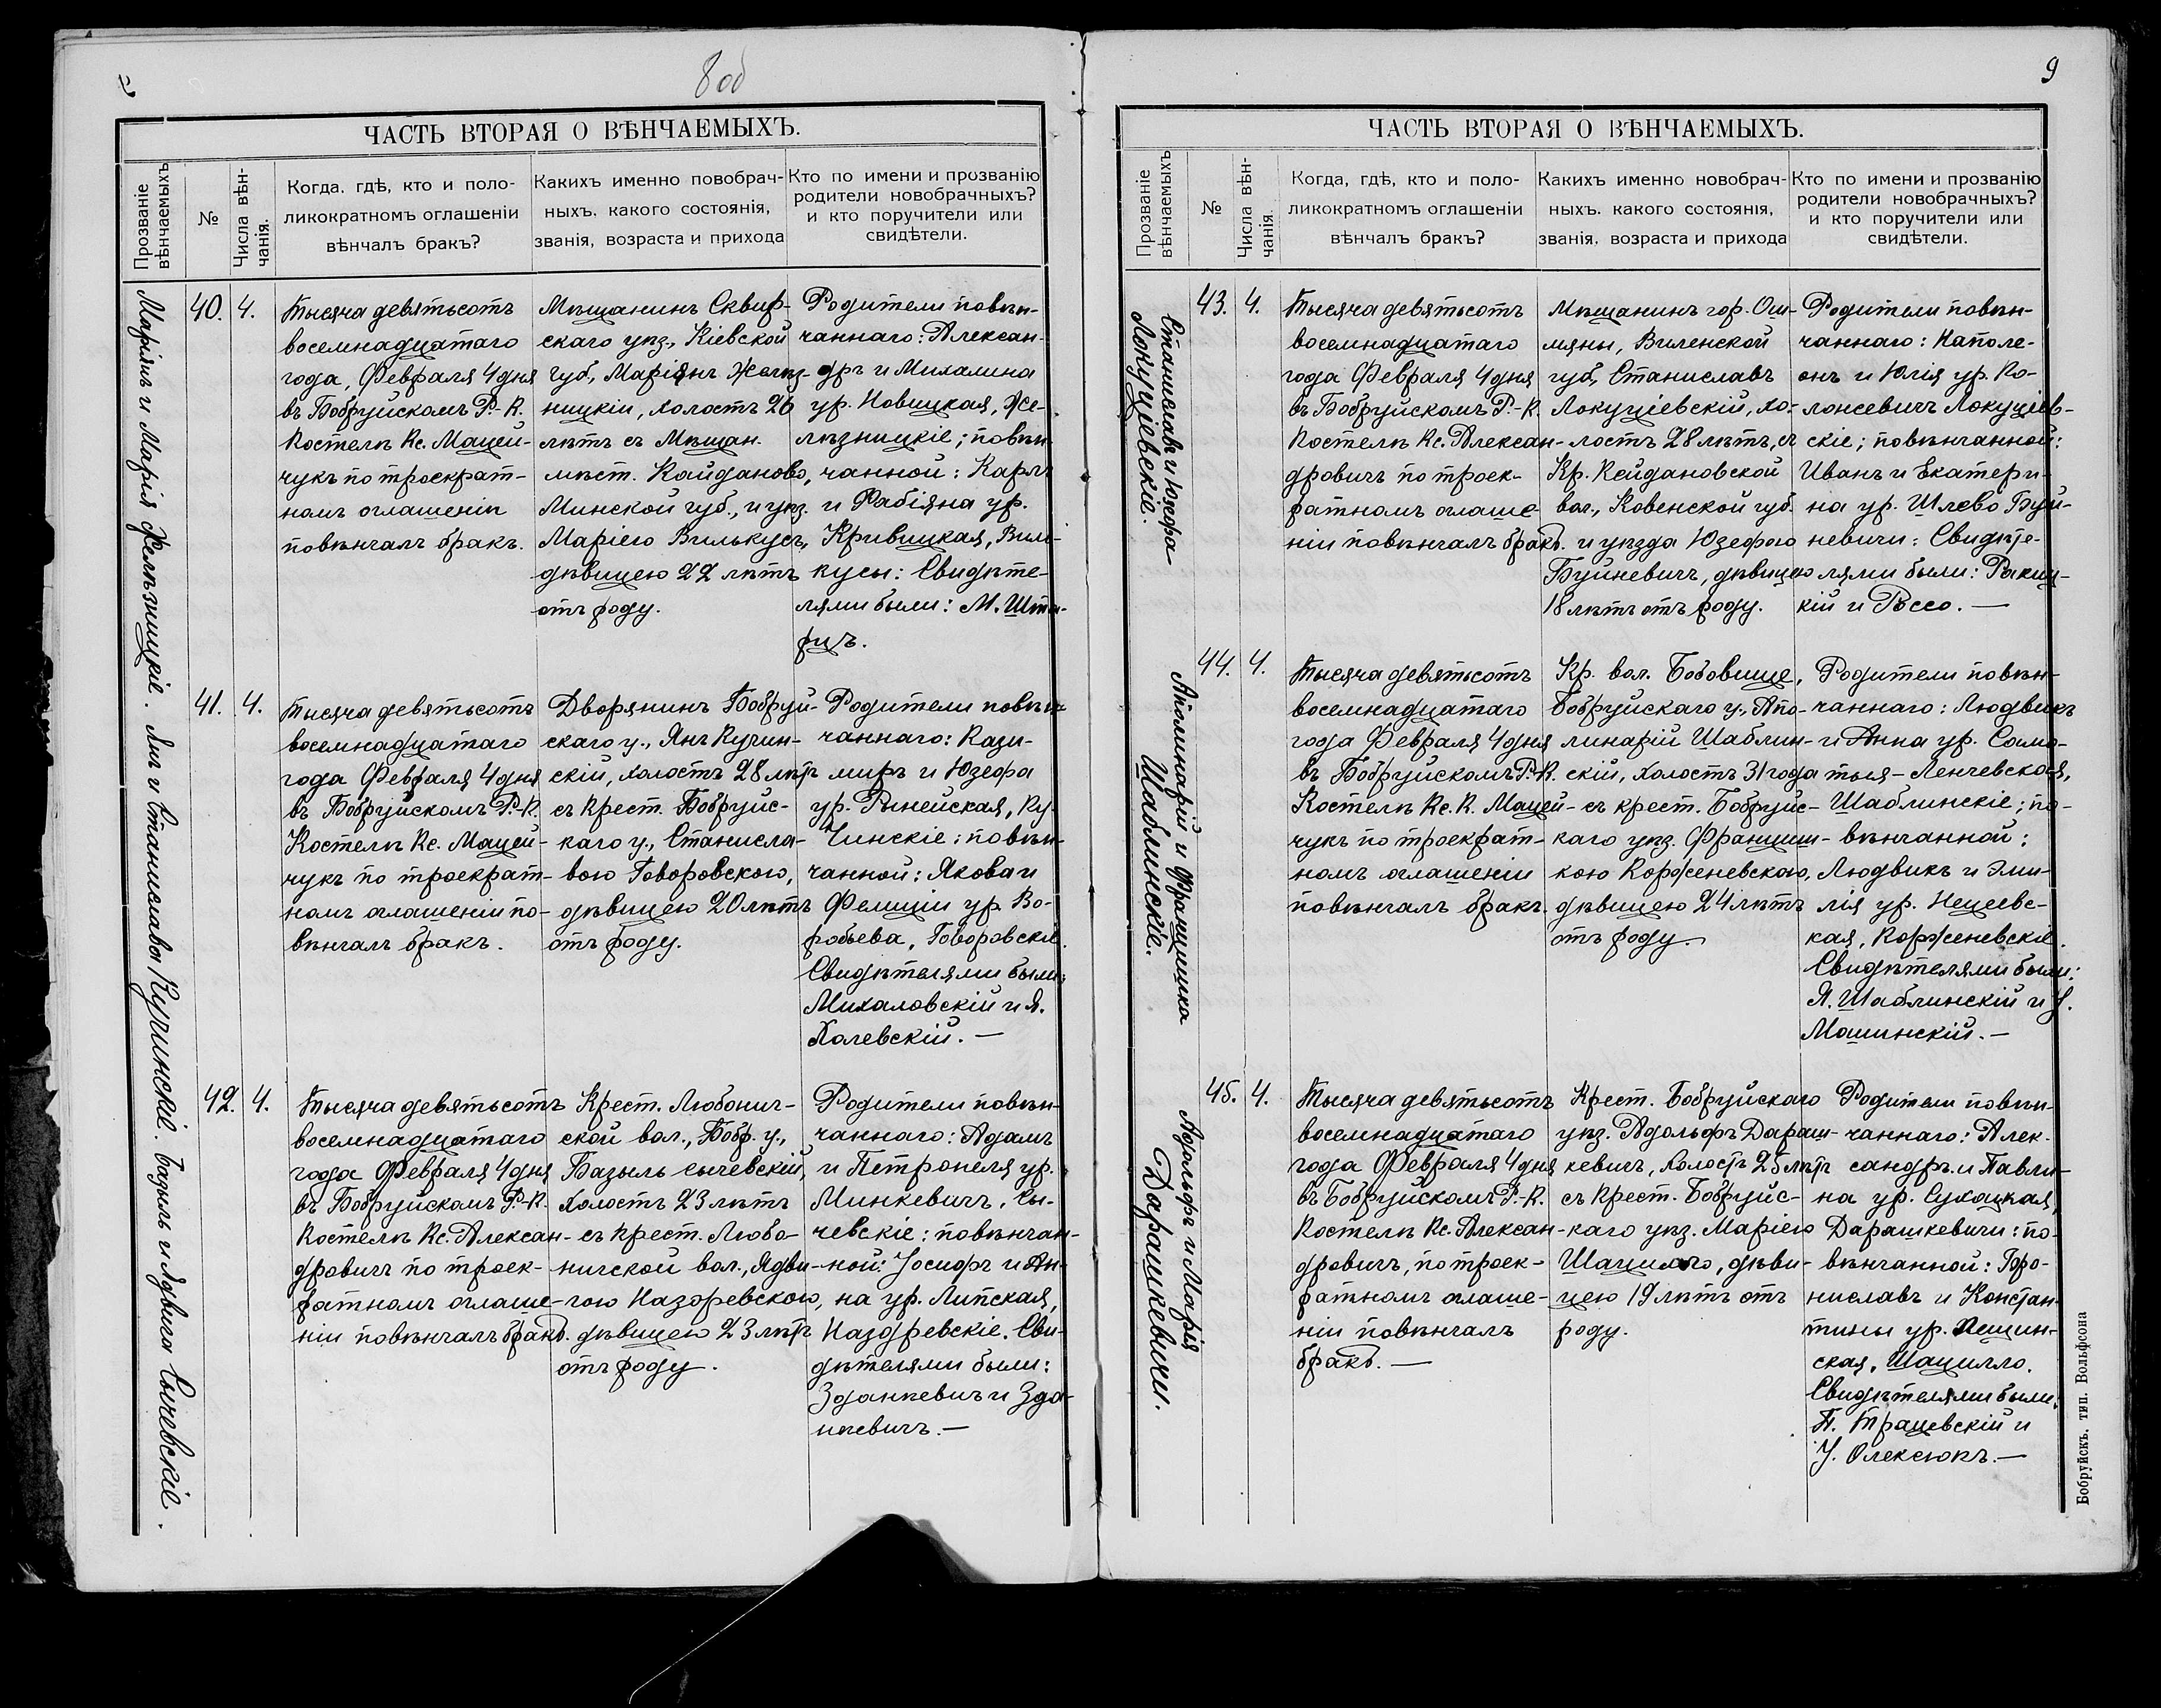 8об
ЧАСТЬ ВТОРАЯ О ВѢНЧАЕМЫХЪ.
Прозваніе
вѣнчаемыхъ
№
Числа вѣн-
чанія.
Когда, гдѣ, кто и поло-
ликократномъ оглашеніи
вѣнчалъ бракъ?
Какихъ именно повобрач-
ныхъ, какого состоянія,
званія, возраста и прихода
Кто по имени и прозванію
родители новобрачныхъ?
и кто поручители или
свидѣтели.
Маріянъ и Марія Желѣзницкіе.
40.
4.
Тысяча девятьсотъ
восемнадцатаго
года, Февраля 4 дня
въ Бобруйскомъ Р.-К.
Костелѣ Кс. Мацей-
чукъ по троекрат-
номъ оглашеніи
повѣнчалъ бракъ.
Мѣщанинъ Сквир-
скаго уѣз., Кіевской
губ., Маріянъ Желѣз-
ницкій, холостъ 26
лѣтъ съ Мѣщан.
мѣст. Койданово,
Минской губ., и уѣз.
Маріею Вилькусъ,
дѣвицею 22 лѣтъ
отъ роду.
Родители повѣн-
чаннаго: Алексан-
дръ и Михалина
ур. Новицкая, Же-
лѣзницкіе; повѣн-
чанной: Карлъ
и Фабіяна ур.
Кривицкая, Виль-
кусы: Свидѣте-
лями были: М. Шта-
рцъ.
Янъ и Станислава Кучинскіе.
41.
4.
Тысяча девятьсотъ
восемнадцатаго
года Февраля 4 дня
въ Бобруйскомъ Р.-К.
Костелѣ Кс. Мацей-
чукъ по троекрат-
номъ оглашеніи по-
вѣнчалъ бракъ.
Дворянинъ Бобруй-
скаго у., Янъ Кучин-
скій, холостъ 28 лѣтъ
съ крест. Бобруйс-
каго у., Станисла-
вою Говоровскою,
дѣвицею 20 лѣтъ
отъ роду.
Родители повѣн-
чаннаго: Кази-
миръ и Юзефа
ур. Рынейская, Ку-
чинскіе; повѣн-
чанной: Якова и
Фелиціи ур. Во-
робьева, Говоровскіе.
Свидѣтелями были:
Михаловскій и Я.
Холевскій. —
Базыль и Ядвига Сычевскіе.
42.
4.
Тысяча девятьсотъ
восемнадцатаго
года Февраля 4 дня
въ Бобруйскомъ Р.-К.
Костелѣ Кс. Алексан-
дровичъ по троек-
ратномъ оглаше-
ніи повѣнчалъ бракъ.
Крест. Любонич-
ской вол., Бобр. у.,
Базыль Сычевскій,
холостъ 23 лѣтъ
съ крест. Любо-
ничской вол., Ядви-
гою Наздревскою,
дѣвицею 23 лѣтъ
отъ роду.
Родители повѣн-
чаннаго: Адамъ
и Петронеля ур.
Минкевичъ, Сы-
чевскіе: повѣнчан-
ной: Іосифъ и Ан-
на ур. Липская,
Наздревскіе. Сви-
дѣтелями были:
Зданкевичъ и Зда-
нкевичъ. —
9
ЧАСТЬ ВТОРАЯ О ВѢНЧАЕМЫХЪ.
Прозваніе
вѣнчаемыхъ
№
Числа вѣн-
чанія.
Когда, гдѣ, кто и поло-
ликократномъ оглашеніи
вѣнчалъ бракъ?
Какихъ именно новобрач-
ныхъ, какого состоянія,
званія, возраста и прихода
Кто по имени и прозванію
родители новобрачныхъ?
и кто поручители или
свидѣтели.
Станиславъ и Юзефа
Локуціевскіе.
43.
4.
Тысяча девятьсотъ
восемнадцатаго
года Февраля 4 дня
въ Бобруйскомъ Р.-К.
Костелѣ Кс. Алексан-
дровичъ по троек-
ратномъ оглаше-
ніи повѣнчалъ бракъ.
Мѣщанинъ гор. Ош-
мяны, Виленской
губ., Станиславъ
Локуціевскій, хо-
лостъ 28 лѣтъ, съ
Кр. Кейдановской
вол., Ковенской губ.
и уѣзда Юзефою
Буйневичъ, дѣвицею
18 лѣтъ отъ роду.
Родители повѣн-
чаннаго: Наполе-
онъ и Юлія ур. Ко-
лонсевичъ Локуціев-
скіе; повѣнчанной:
Иванъ и Екатери-
на ур. Шлево Буй-
невичи: Свидѣте-
лями были: Ракиц-
кій и Россо. —
Аполинарій и Францишка
Шаблинскіе.
44.
4.
Тысяча девятьсотъ
восемнадцатаго
года Февраля 4 дня
въ Бобруйскомъ Р.-К.
Костелѣ Кс. К. Мацей-
чукъ по троекрат-
номъ оглашеніи
повѣнчалъ бракъ.
Кр. вол. Бобовище,
Бобруйскаго у., Апо-
линарій Шаблин-
скій, холостъ 31 года
съ крест. Бобруйс-
каго уѣз. Франциш-
кою Корженевскою,
дѣвицею 24 лѣтъ
отъ роду.
Родители повѣн-
чаннаго: Людвикъ
и Анна ур. Само-
тыя-Ленчевская,
Шаблинскіе; по-
вѣнчанной:
Людвикъ и Эми-
лія ур. Нецевс-
кая, Корженевскіе.
Свидѣтелями были:
Я. Шаблинскій и
Машинскій. —
Адольфъ и Марія
Дарашкевичи.
45.
4.
Тысяча девятьсотъ
восемнадцатаго
года Февраля 4 дня
въ Бобруйскомъ Р.-К.
Костелѣ Кс. Алексан-
дровичъ, по троек-
ратномъ оглаше-
ніи повѣнчалъ
бракъ. —
Крест. Бобруйскаго
уѣз. Адольфъ Дараш-
кевичъ, холостъ 25 лѣтъ
съ крест. Бобруйс-
каго уѣз. Маріею
Шацилло, дѣви-
цею 19 лѣтъ отъ
роду.
Родители повѣн-
чаннаго: Алек-
сандръ и Павли-
на ур. Сухоцкая,
Дарашкевичи: по-
вѣнчанной: Бро-
ниславъ и Констан-
тины ур. Лещин-
ская, Шацилло.
Свидѣтелями были:
П. Трацевскій и
У. Олексюкъ. —
Бобруйскъ. тип. Вольфсона